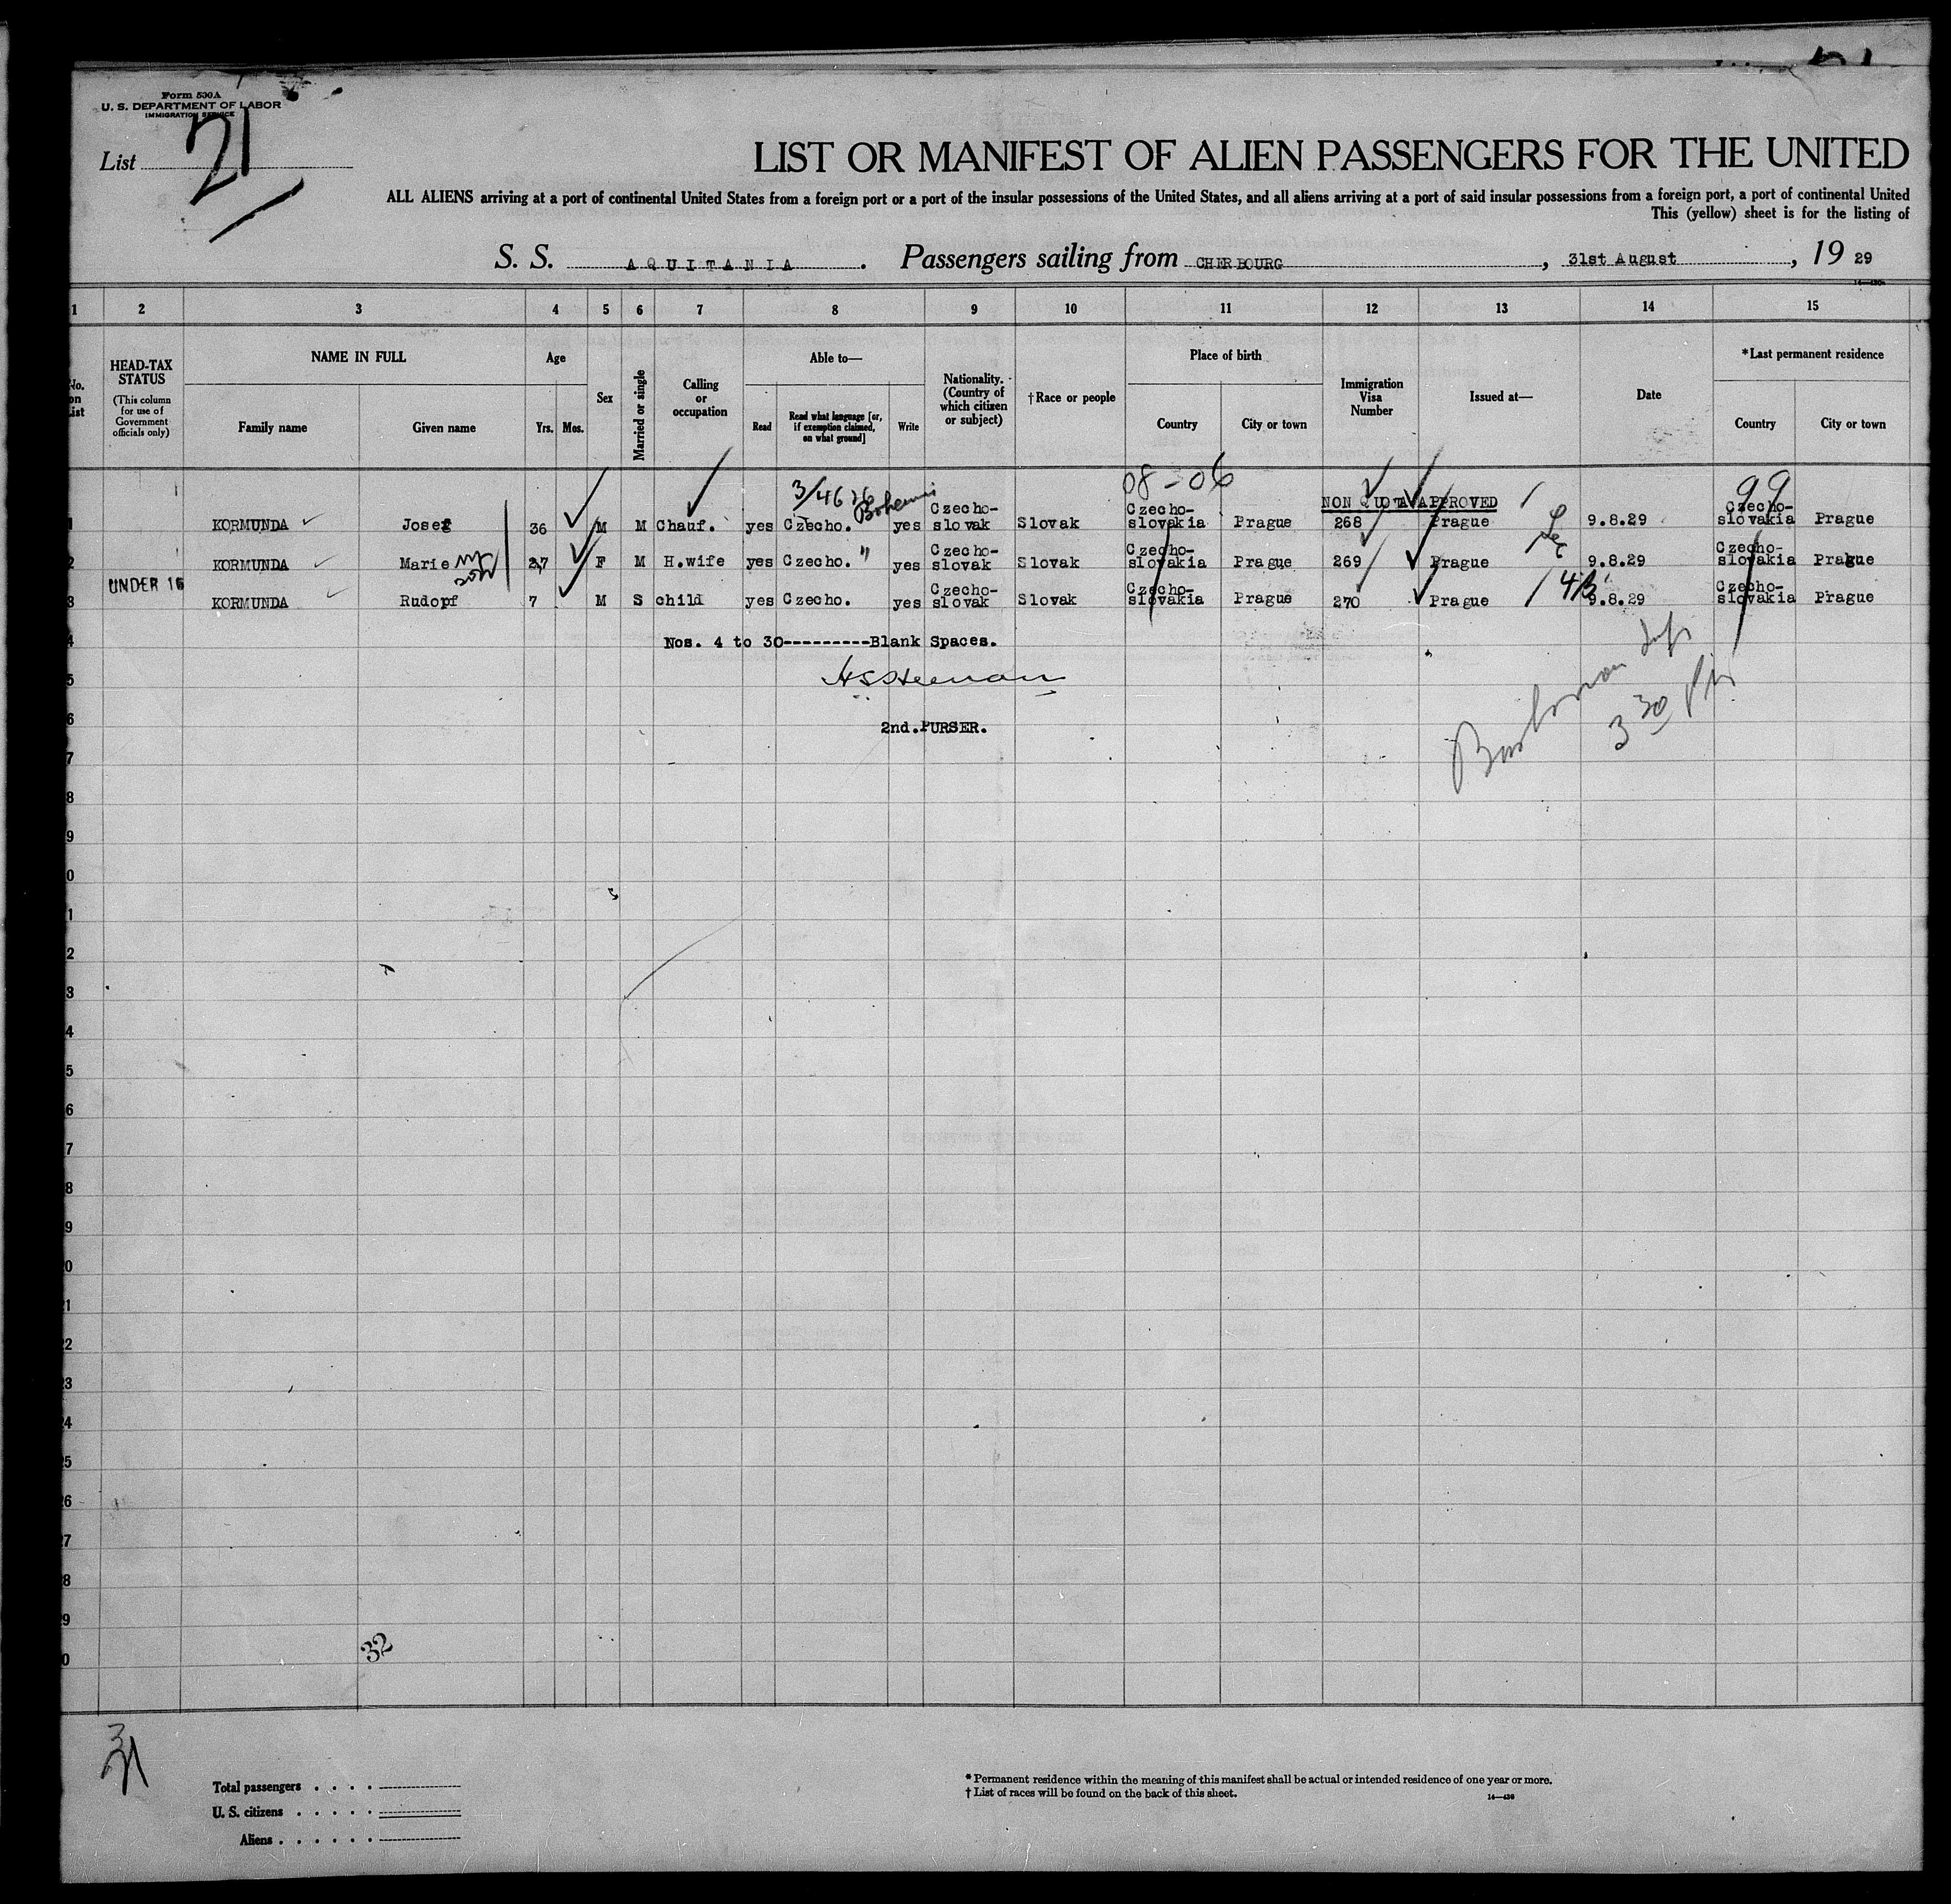 Form 500A
U. S. DEPARTMENT OF LABOR
IMMIGRATION SERVICE
List 21
LIST OR MANIFEST OF ALIEN PASSENGERS FOR THE UNITED
ALL ALIENS arriving at a port of continental United States from a foreign port or a port of the insular possessions of the United States, and all aliens arriving at a port of said insular possessions from a foreign port, a port of continental United
This (yellow) sheet is for the listing of
S. S. AQUITANIA. Passengers sailing from CHERBOURG, 31st August, 19 29
1 2 3 4 5 6 7 8 9 10 11 12 13 14 15
No. on List
HEAD-TAX STATUS
(This column for use of Government officials only)
NAME IN FULL
Family name
Given name
Age
Yrs. Mos.
Sex
Married or single
Calling or occupation
Able to—
Read
Read what language [or, if exemption claimed, on what ground]
Write
Nationality. (Country of which citizen or subject)
†Race or people
Place of birth
Country
City or town
Immigration Visa Number
Issued at—
Date
*Last permanent residence
Country
City or town
3/46 26 Bohemi
08-06
NON QUOTA APPROVED
99
1 KORMUNDA Josef 36 M M Chauf. yes Czecho. yes Czecho-slovak Slovak Czecho-slovakia Prague 268 Prague 9.8.29 Czecho-slovakia Prague
2 KORMUNDA Marie 27 F M H.wife yes Czecho. " yes Czecho-slovak Slovak Czecho-slovakia Prague 269 Prague 9.8.29 Czecho-slovakia Prague
UNDER 16
3 KORMUNDA Rudopf 7 M S child yes Czecho. yes Czecho-slovak Slovak Czecho-slovakia Prague 270 Prague 9.8.29 Czecho-slovakia Prague
4 Nos. 4 to 30---------Blank Spaces.
5
6 2nd. PURSER.
3 30
7
8
9
0
1
2
3
4
5
6
7
8
9
20
21
22
23
24
25
26
27
28
29
0
32
3
21
Total passengers . . . .
U. S. citizens . . . . .
Aliens . . . . . .
* Permanent residence within the meaning of this manifest shall be actual or intended residence of one year or more.
† List of races will be found on the back of this sheet.
14—430